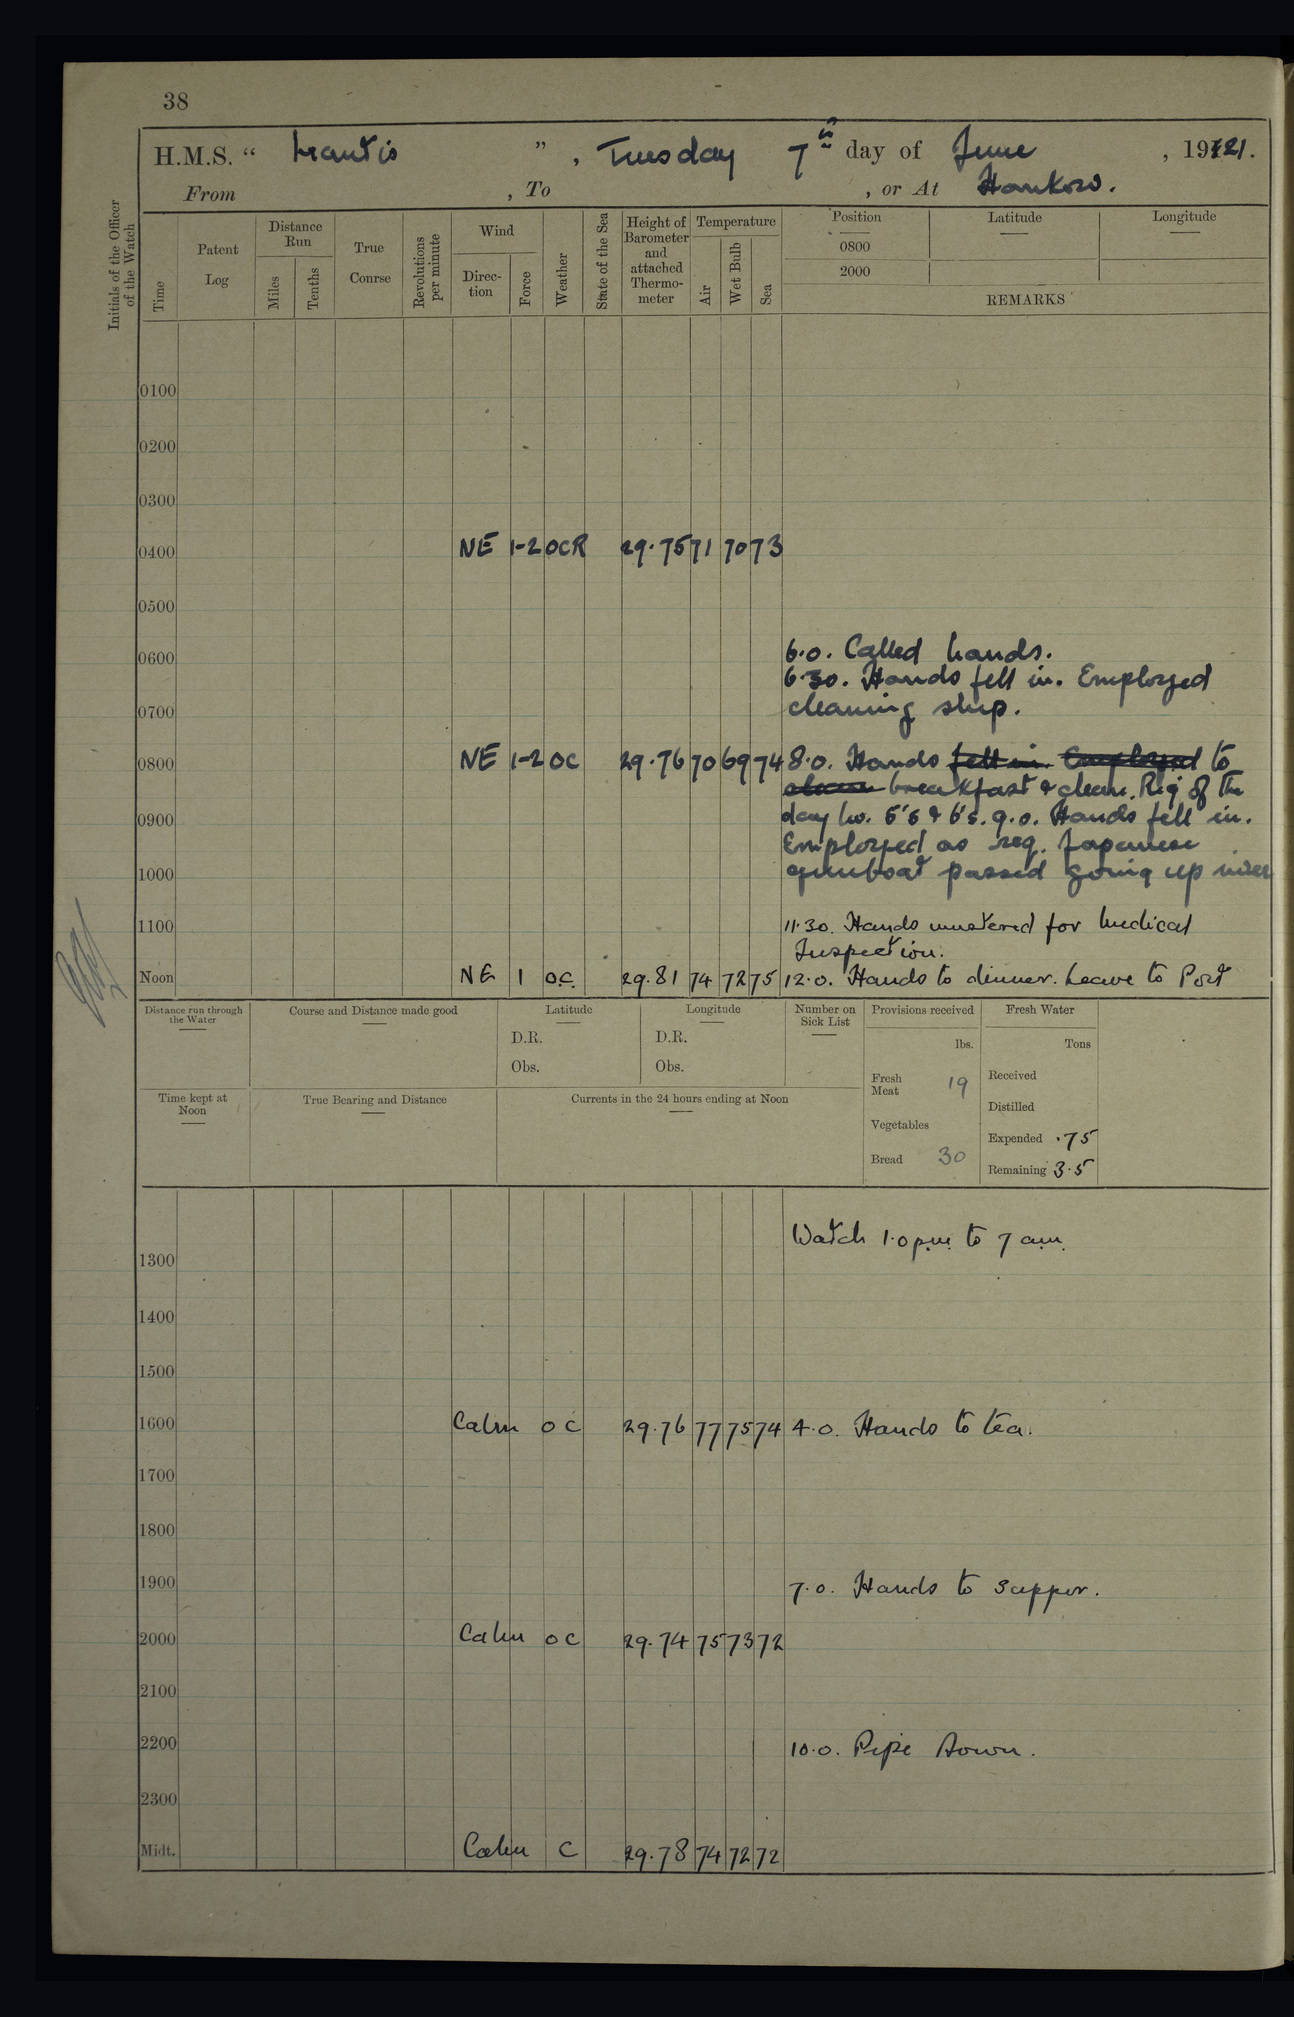 38
H.M.S. “ Mantis ” , Tuesday 7th day of June , 1921.
From , To , or At Hankow.
Initials of the Officer of the Watch
Time
Patent Log
Distance Run
Miles
Tenths
True Course
Revolutions per minute
Wind
Direc- tion
Force
Weather
State of the Sea
Height of Barometer and attached Thermo- meter
Temperature
Air
Wet Bulb
Sea
Position
Latitude
Longitude
0800
2000
REMARKS
0100
0200
0300
0400 NE 1-2 OCR 29.75 71 70 73
0500
0600 6.0. Called hands.
6.30. Hands fell in. Employed
0700 cleaning ship.
0800 NE 1-2 OC 29.76 70 69 74 8.0. Hands fell in. Employed to
clean breakfast & clean. Rig of the
0900 day No. 5's & 6's. 9.0. Hands fell in.
Employed as req. Japanese
1000 gunboat passed going up river
1100 11.30. Hands mustered for Medical
Inspection.
Noon NE 1 OC. 29.81 74 72 75 12.0. Hands to dinner. Leave to Port
Distance run through the Water
Course and Distance made good
Latitude
D.R.
Obs.
Longitude
D.R.
Obs.
Number on Sick List
Provisions received
lbs.
Fresh Meat 19
Vegetables
Bread 30
Fresh Water
Tons
Received
Distilled
Expended .75
Remaining 3.5
Time kept at Noon
True Bearing and Distance
Currents in the 24 hours ending at Noon
Watch 1.0 p.m. to 7 a.m.
1300
1400
1500
1600 Calm OC 29.76 77 75 74 4.0. Hands to tea.
1700
1800
1900 7.0. Hands to supper.
2000 Calm OC 29.74 75 73 72
2100
2200 10.0. Pipe down.
2300
Midt. Calm C 29.78 74 72 72